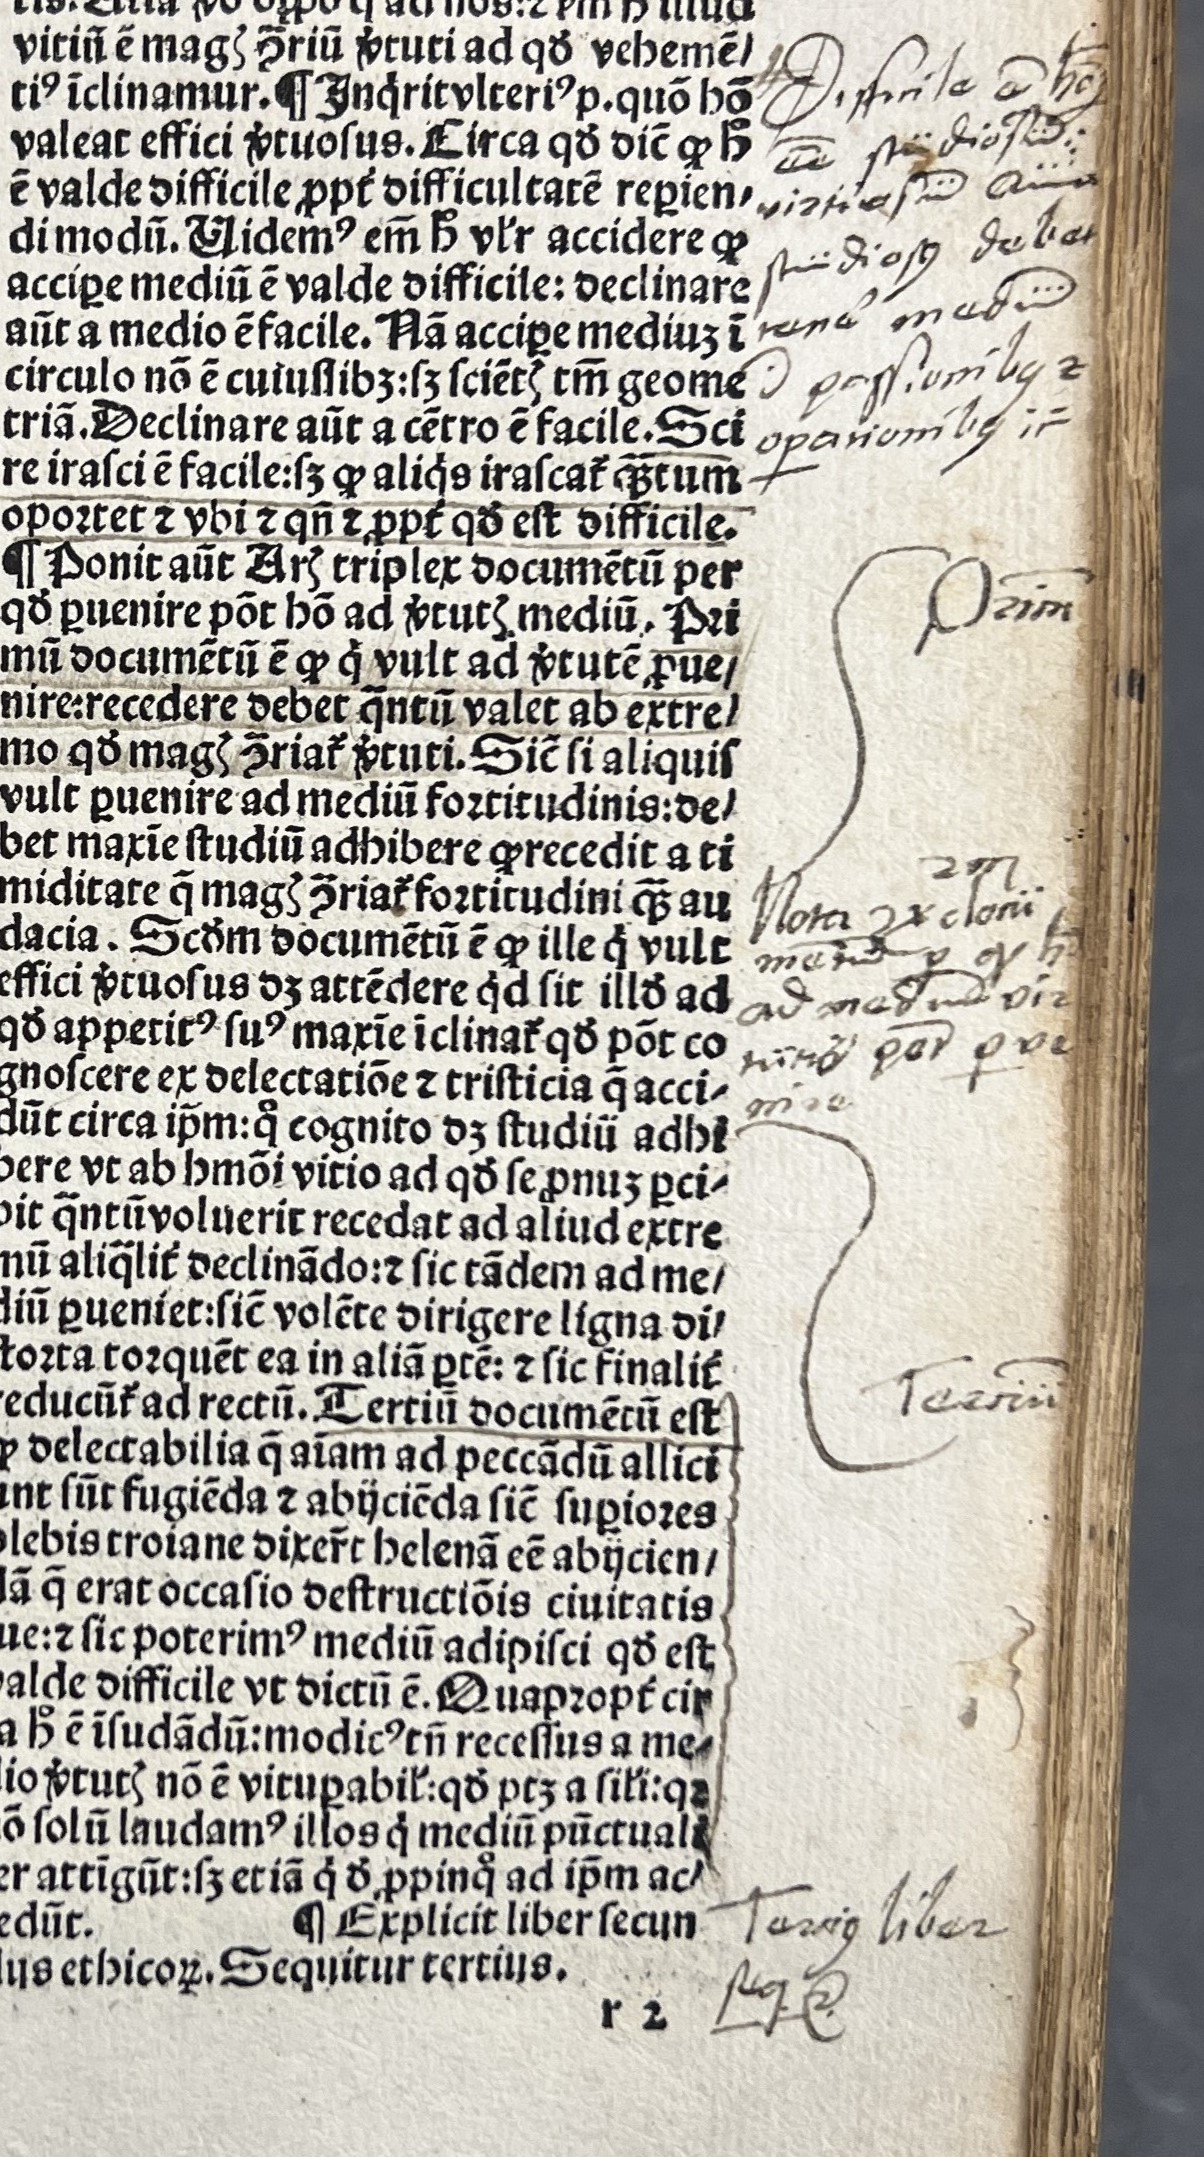 vitiū ē magꝭ ↄ̄riū v̓tuti ad qđ vehemē/
ti⁹ īclinamur. ¶ Inq̇rit vlteri⁹ p. quō hō
valeat effici v̓tuoſus. Circa qđ dic̄ ꝙ h̊
ē valde difficile ꝓpt̓ difficultatē reꝑien/
di modū. Uidem⁹ em̄ h̊ vl̓r accidere ꝙ
acciꝑe mediū ē valde difficile: declinare
aūt a medio ē facile. Nā acciꝑe mediuꝫ ī
circulo nō ē cuiuſlibꝫ: ſꝫ ſciēt̄ꝭ tm̄ geome
triā. Declinare aūt a cētro ē facile. Sci
re iraſci ē facile: ſꝫ ꝙ aliq̇s iraſcat̓ ꝙ̄tum
oportet ⁊ vbi ⁊ qn̄ ⁊ ꝓpt̓ qđ eſt difficile.
¶ Ponit aūt Arꝭ triplex documētū per
qđ ꝑuenire pōt hō ad v̓tutꝭ mediū. Pri
mū documētū ē ꝙ q̇ vult ad v̓tutē ꝓue/
nire: recedere debet q̄ntū valet ab extre/
mo qđ magꝭ ↄ̄riat̓ v̓tuti. Sic̄ ſi aliquiſ
vult ꝑuenire ad mediū fortitudinis: de/
bet maxīe ſtudiū adhibere ꝙ recedit a ti
miditate q̄ magꝭ ↄ̄riat̓ fortitudini ꝙ̄ au
dacia. Scđm documētū ē ꝙ ille q̇ vult
effici v̓tuoſus dꝫ attēdere q̇d ſit illđ ad
qđ appetit⁹ ſu⁹ maxīe īclinat̓ qđ pōt co
gnoſcere ex delectatiōe ⁊ triſticia q̄ acci/
dūt circa ip̄m: q̊ cognito dꝫ ſtudiū adhi
bere vt ab hmōi vitio ad qđ ſe ꝓnuꝫ ꝑci/
pit q̄ntū voluerit recedat ad aliud extre
mū aliq̄lit̓ declinādo: ⁊ ſic tādem ad me/
diū ꝑueniet: ſic̄ volēte dirigere ligna di/
ſtorta torquēt ea in aliā ꝑtē: ⁊ ſic finalit̓
reducūt̓ ad rectū. Tertiū documētū eſt
ꝙ delectabilia q̄ aīam ad peccādū allici
unt ſūt fugiēda ⁊ abijciēda ſic̄ ſuꝑiores
plebis troiane dixer̄t helenā eē abijcien/
dā q̄ erat occaſio deſtructiōis ciuitatis
ue: ⁊ ſic poterim⁹ mediū adipiſci qđ eſt
valde difficile vt dictū ē. Quapropt̓ cir
a h̊ ē īſudādū: modic⁹ tn̄ receſſus a me/
dio v̓tutꝭ nō ē vituꝑabil̓: qđ ptꝫ a ſil̓i: qꝛ
nō ſolū laudam⁹ illos q̇ mediū pūctuali
er attīgūt: ſꝫ etiā q̇ đ ꝓpinq̊ ad ip̄m ac/
edūt. ¶ Explicit liber ſecun
dus ethicoꝝ. Sequitur tertius.
r 2
Difficile ē hoī
ēē ſtudioſū:
virtuoſū
ſtudioſꝯ debet
mediū
ī paſſionibꝯ ⁊
operationibꝯ
Primū
2m
Nota
ad mediū vir
ꝑve
nire
Tertiū
Terciꝯ liber
ſeq.